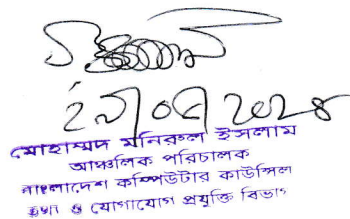 মোহাম্মদ মনিরুল ইসলাম
আঞ্চলিক পরিচালক
বাংলাদেশ কম্পিউটার কাউন্সিল
তথ্য ও যোগাযোগ প্রযুক্তি বিভাগ